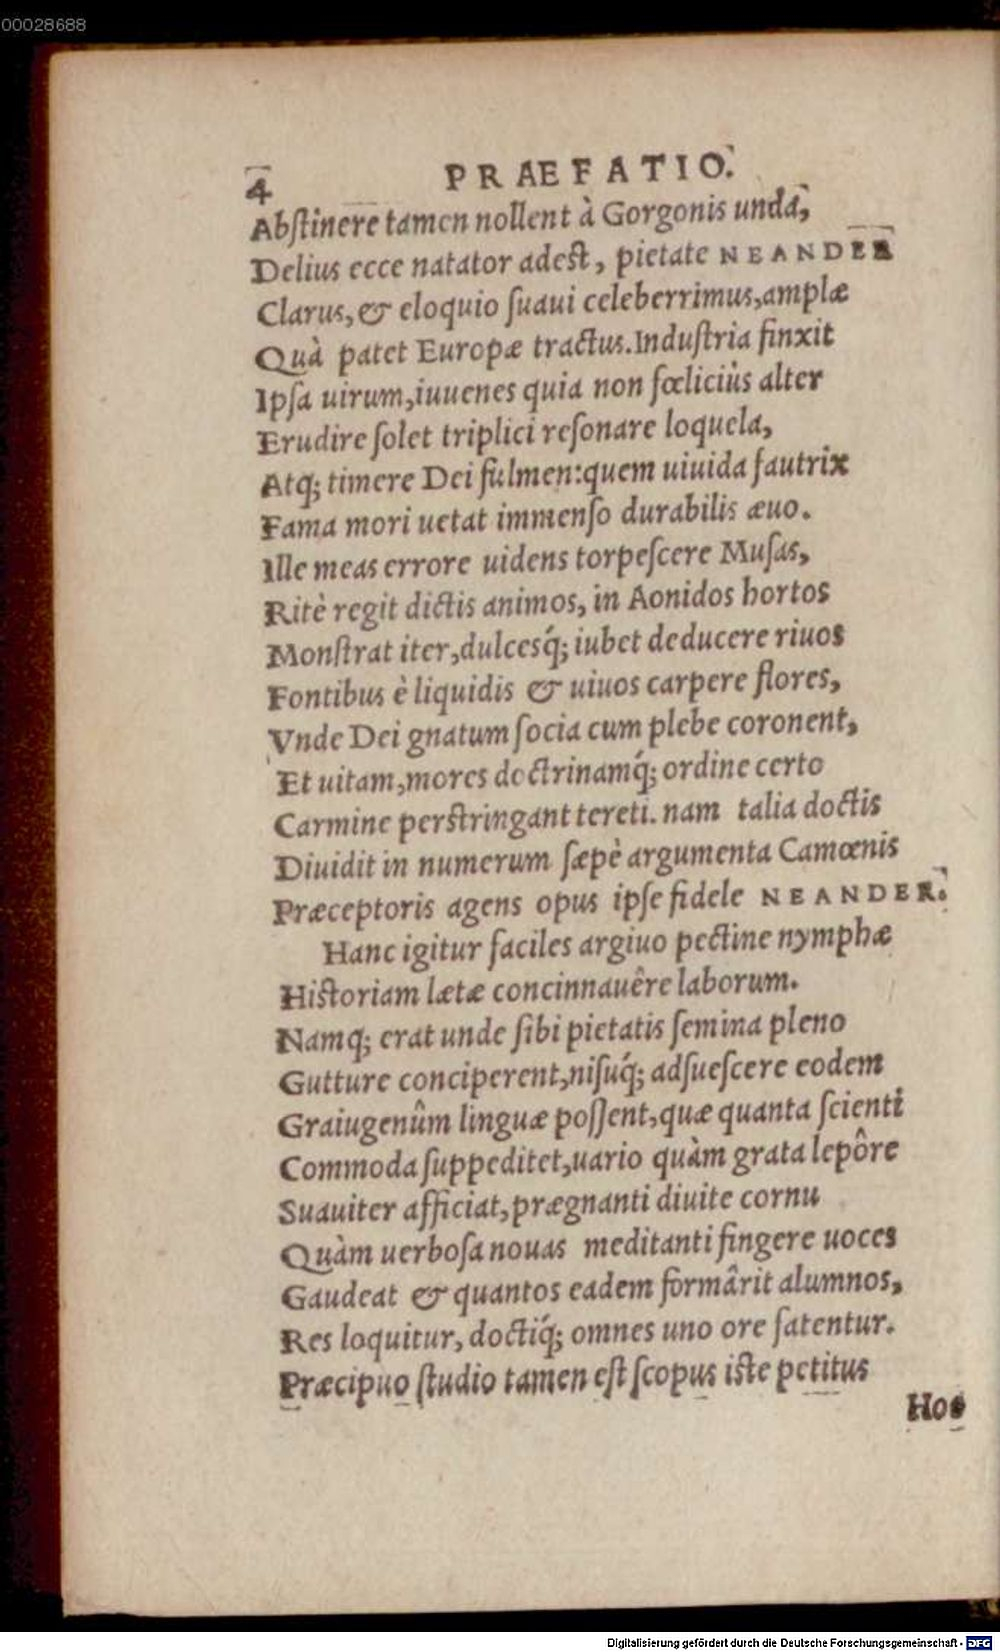 00028688
4 PRAEFATIO.
Abſtinere tamen nollent à Gorgonis unda,
Delius ecce natator adest, pietate NEANDER
Clarus, & eloquio ſuaui celeberrimus, amplæ
Quà patet Europæ tractus. Induſtria finxit
Ipſa uirum, iuuenes quia non fœliciùs alter
Erudire ſolet triplici reſonare loquela,
Atq; timere Dei fulmen: quem uiuida fautrix
Fama mori uetat immenſo durabilis æuo.
Ille meas errore uidens torpeſcere Muſas,
Ritè regit dictis animos, in Aonidos hortos
Monſtrat iter, dulcesq́; iubet deducere riuos
Fontibus è liquidis & uiuos carpere flores,
Vnde Dei gnatum ſocia cum plebe coronent,
Et uitam, mores doctrinamq́; ordine certo
Carmine perstringant tereti. nam talia doctis
Diuidit in numerum ſæpè argumenta Camœnis
Præceptoris agens opus ipſe fidele NEANDER.
Hanc igitur faciles argiuo pectine nymphæ
Historiam lætæ concinnauêre laborum.
Namq; erat unde ſibi pietatis ſemina pleno
Gutture conciperent, niſuq́; adſueſcere eodem
Graiugenûm linguæ poſſent, quæ quanta ſcienti
Commoda ſuppeditet, uario quàm grata lepôre
Suauiter afficiat, prægnanti diuite cornu
Quàm uerboſa nouas meditanti fingere uoces
Gaudeat & quantos eadem formârit alumnos,
Res loquitur, doctiq́; omnes uno ore fatentur.
Præcipuo ſtudio tamen eſt ſcopus iste petitus
Hos
Digitalisierung gefördert durch die Deutsche Forschungsgemeinschaft - DFG